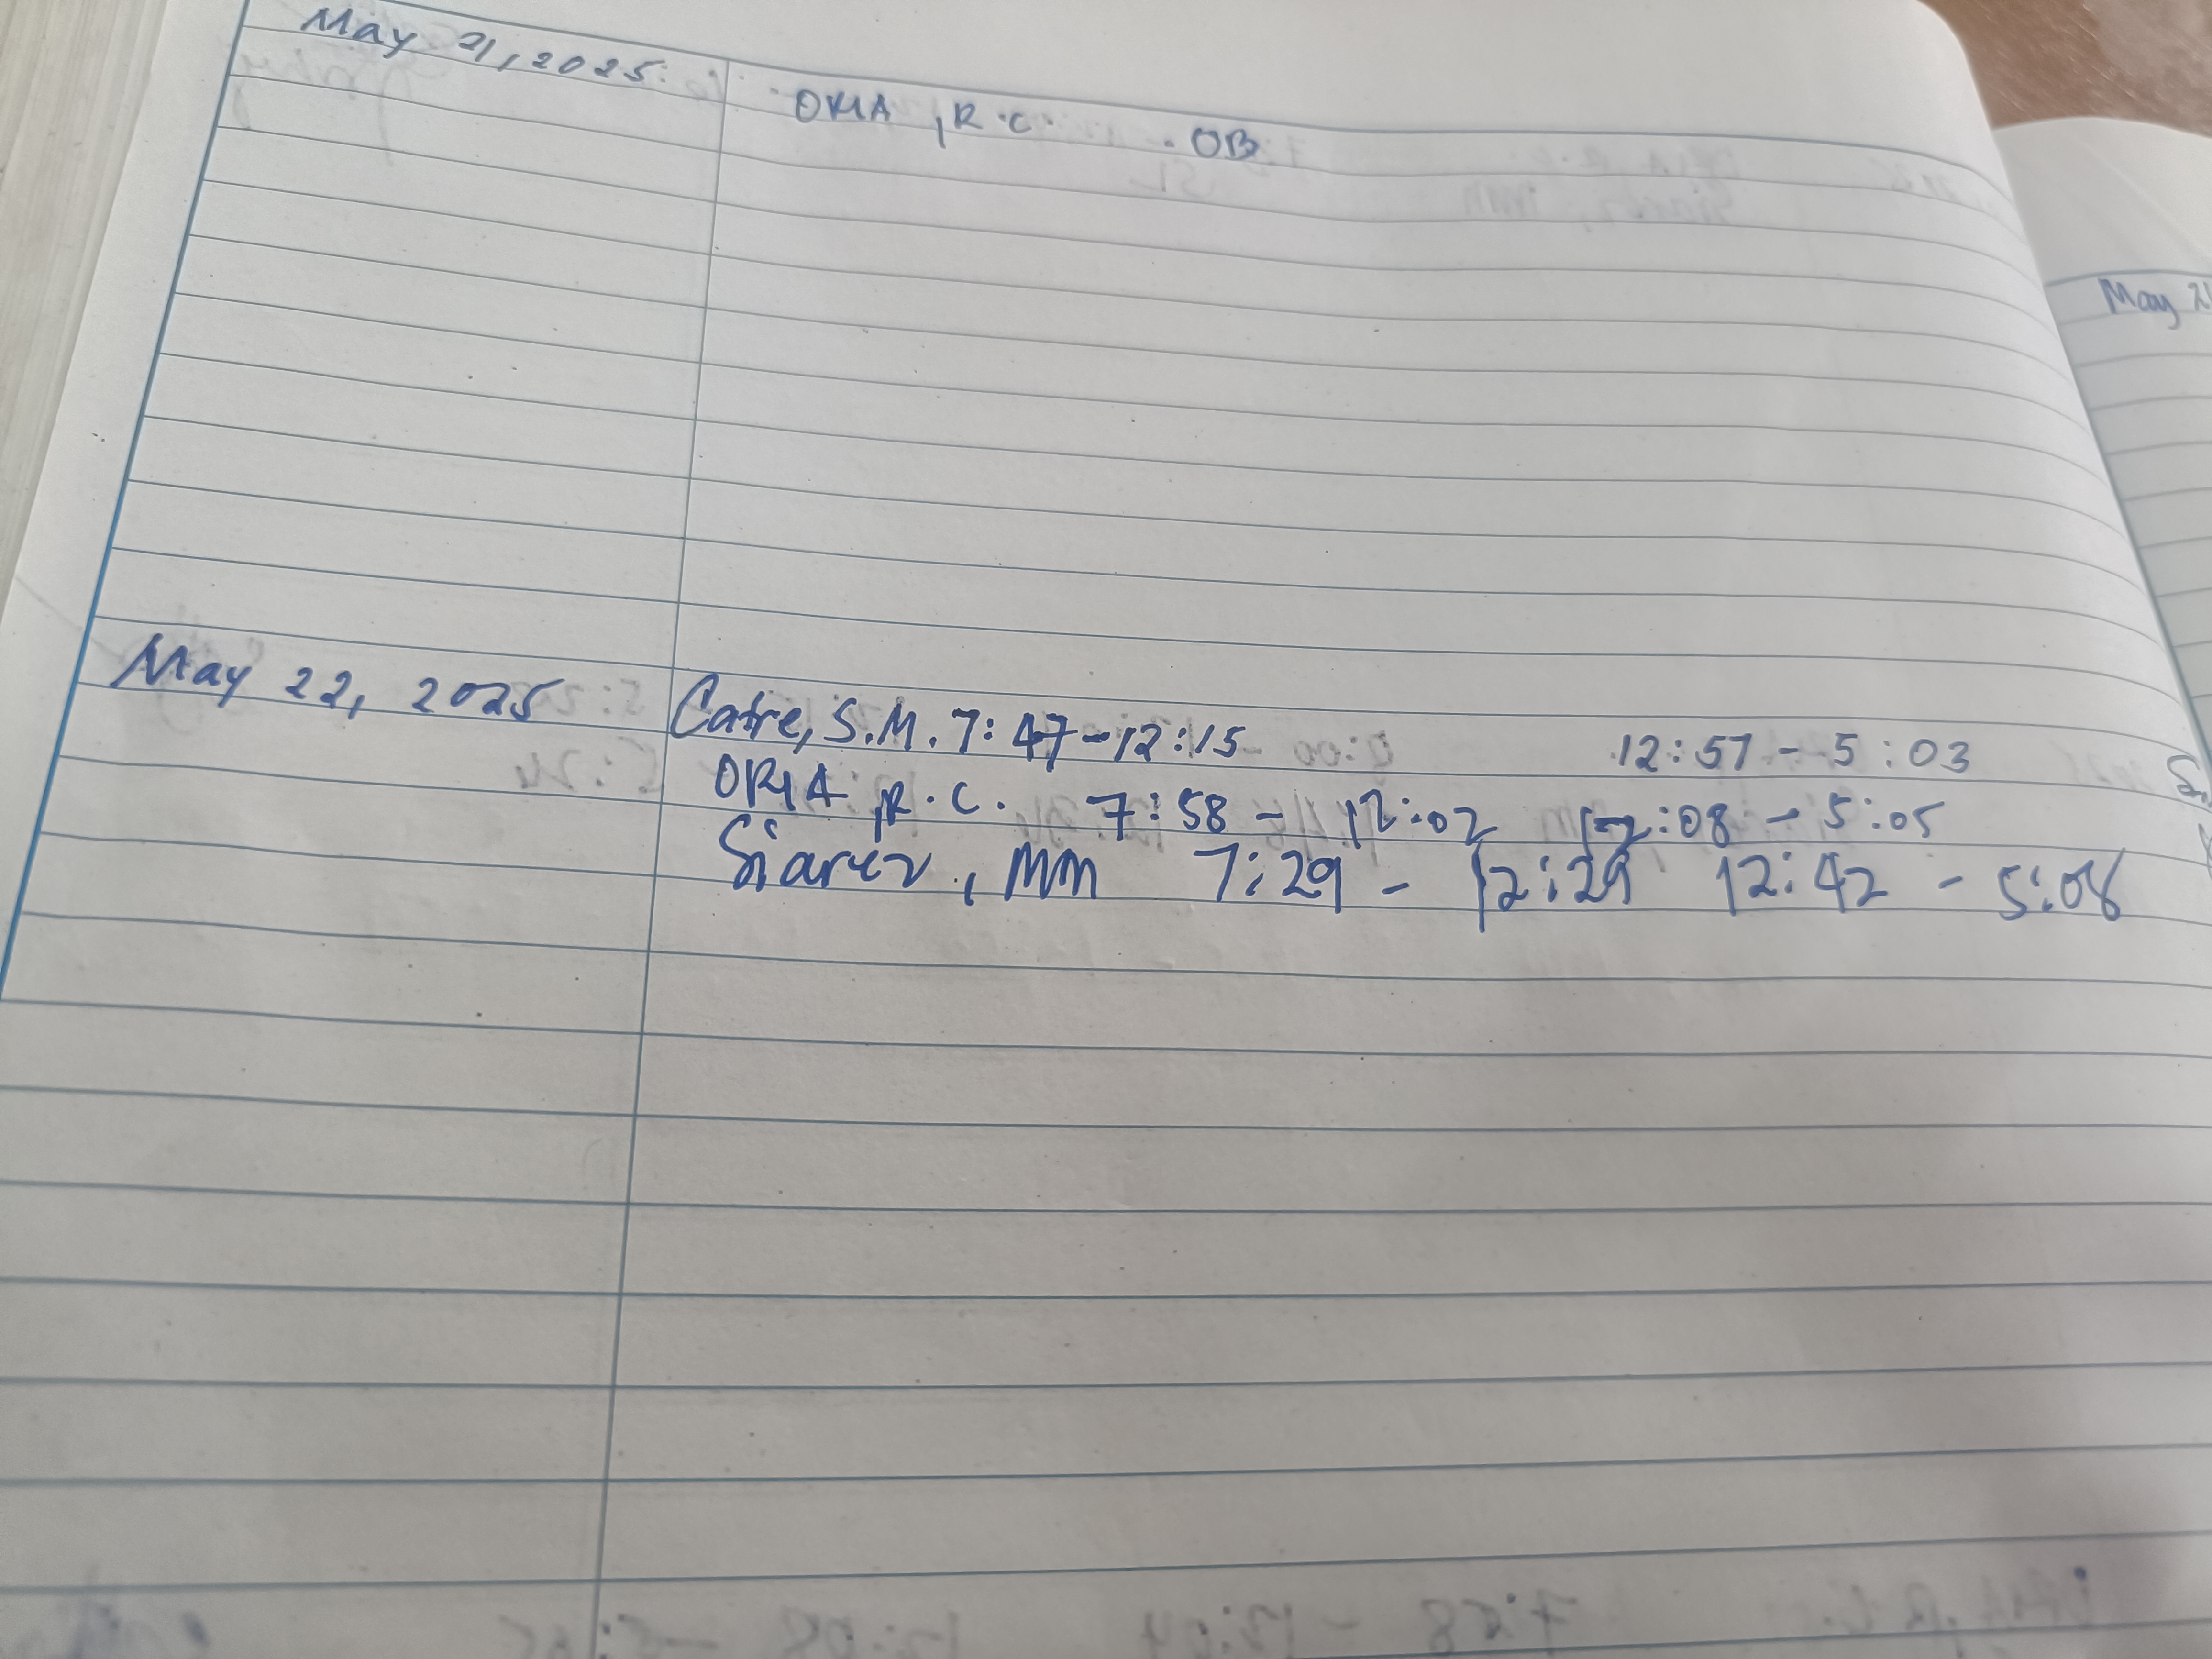 May 21, 2025
ORIA, R.C. OB
May 2
May 22, 2025 Catre, S.M. 7:47-12:15 12:57 - 5:03
ORIA, R.C. 7:58 - 12:02 12:08 - 5:05
Siarez, MM 7:29 - 12:29 12:42 - 5:08